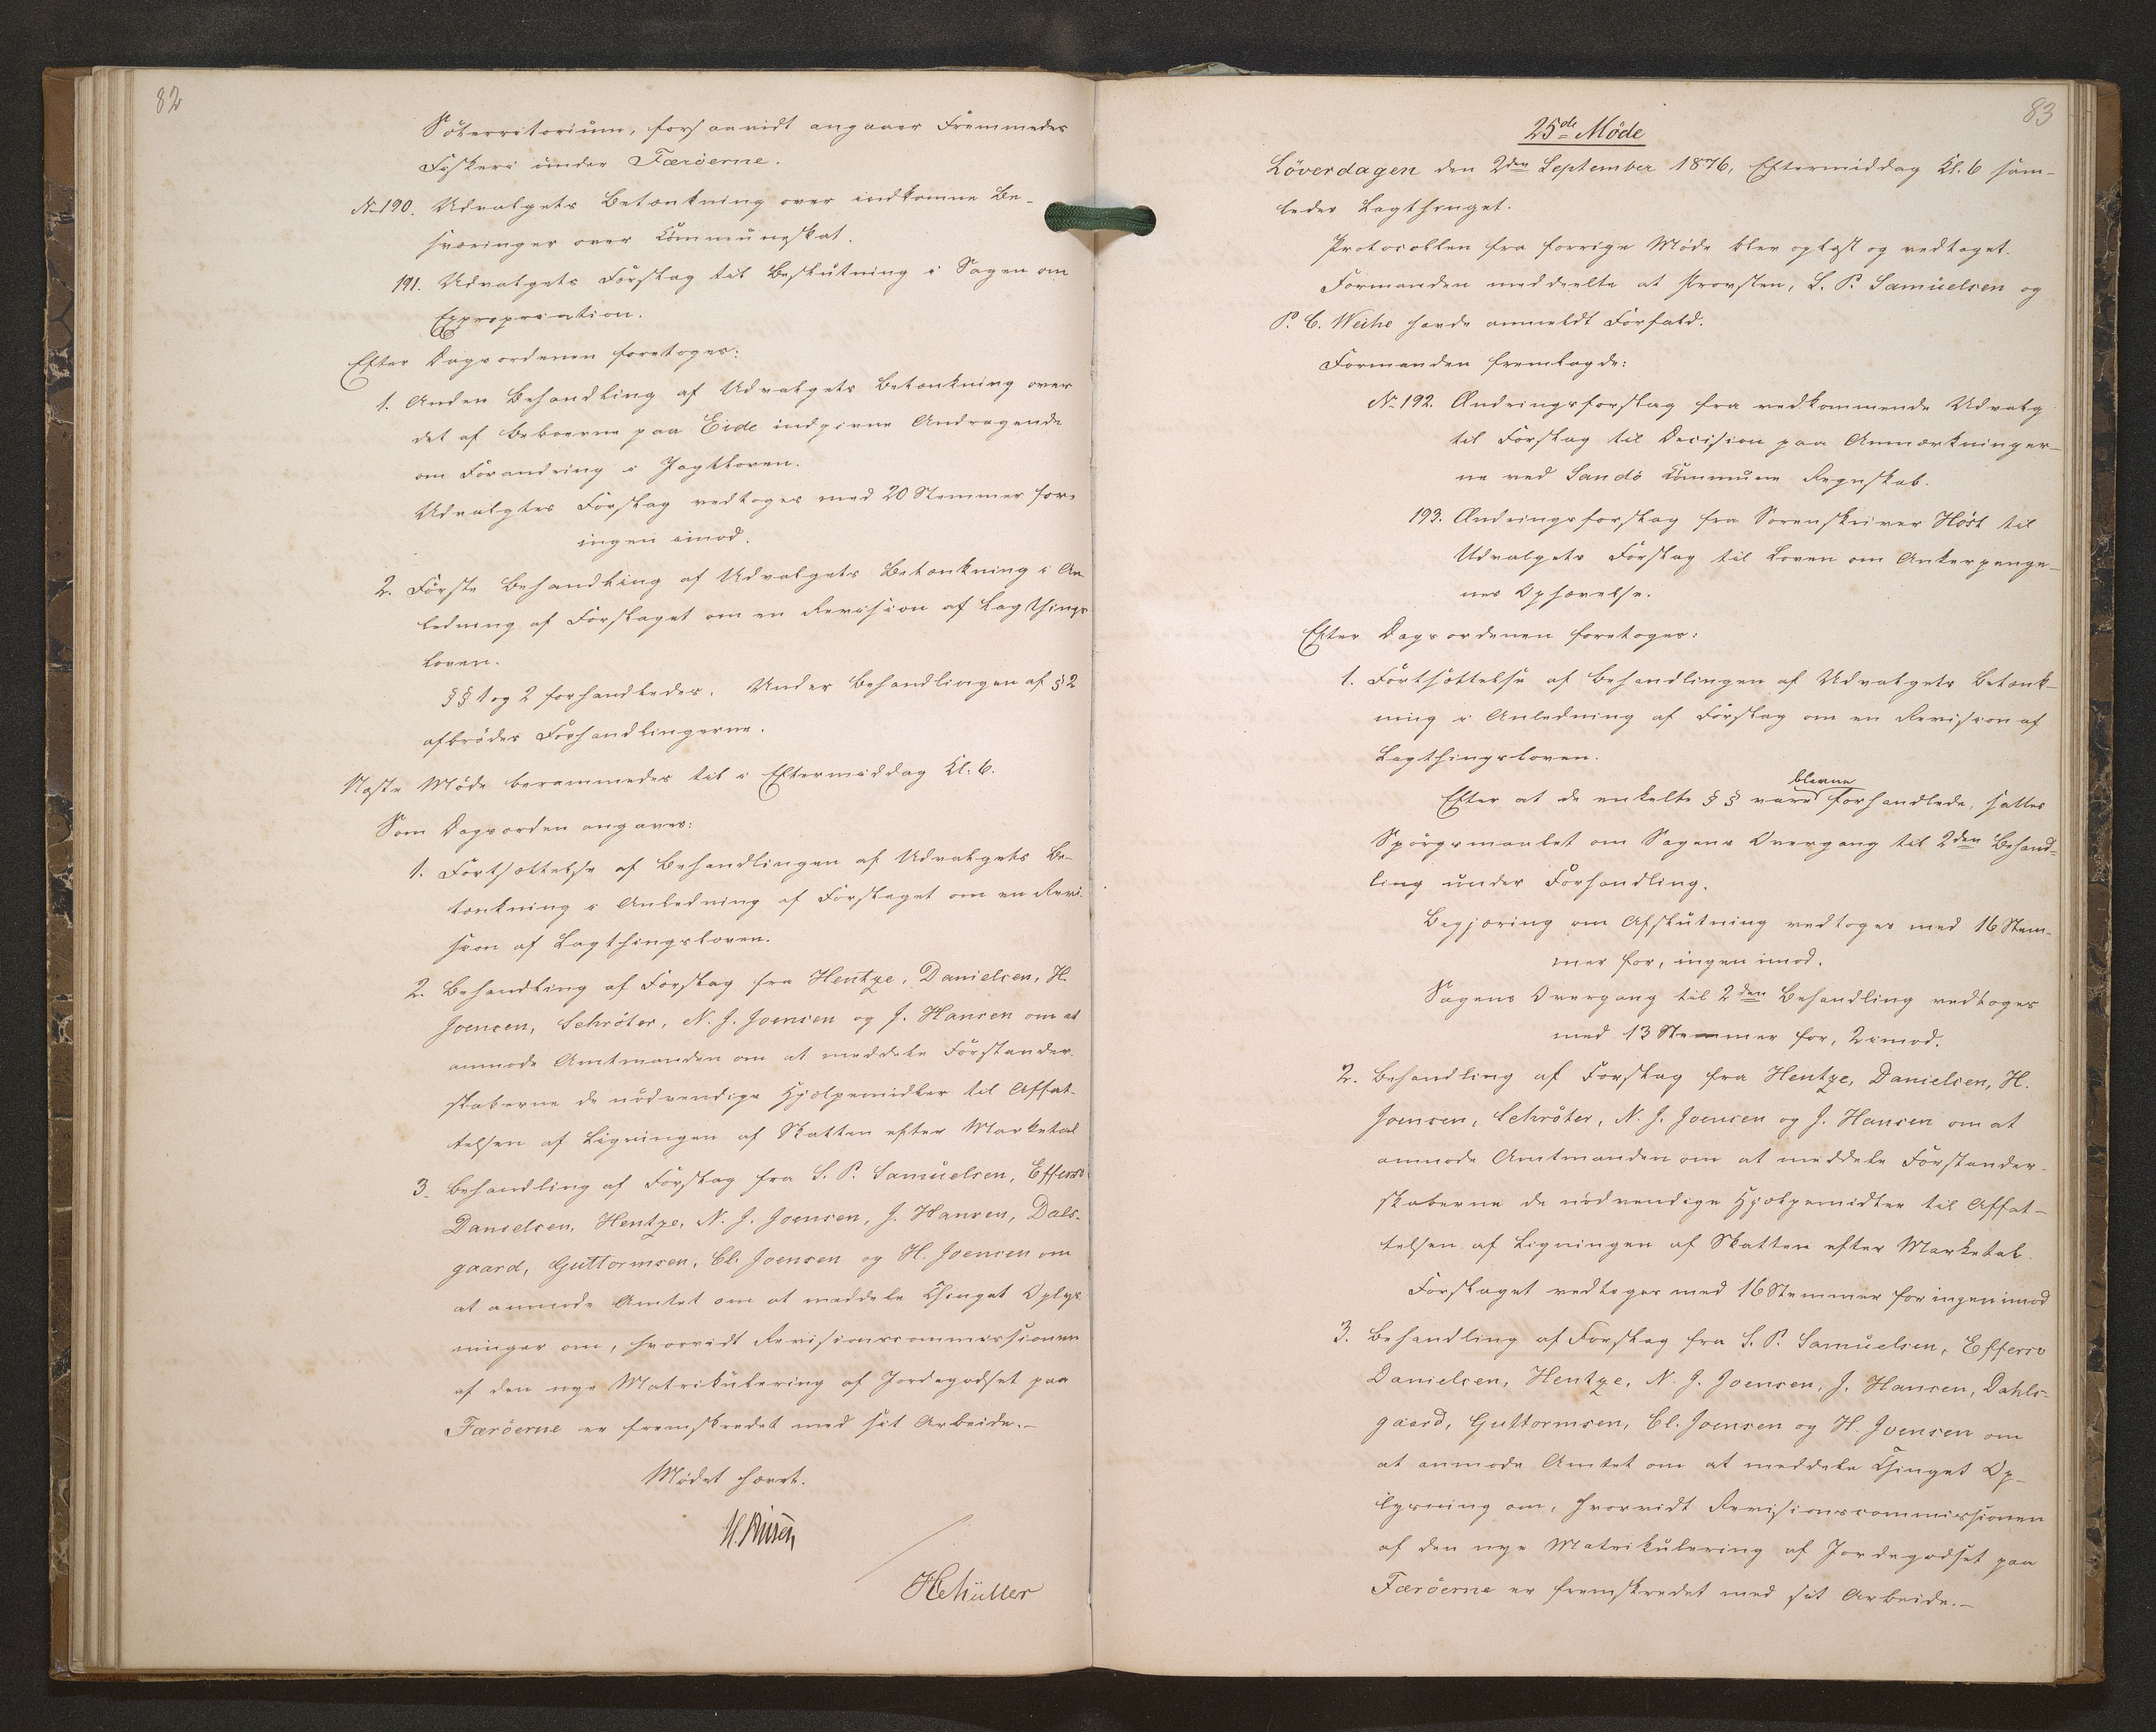 82
Söterritorium, forsaavidt angaaer Fremmedes
Fiskeri under Færöerne.
No 190. Udvalgets Betænkning over indkomne Be-
sværinger over Kommuneskat.
191. Udvalgets Forslag til Beslutning i Sagen om
Expropriation.
Efter Dagsordenen foretoges:
1. Anden Behandling af Udvalgets Betænkning over
det af Beboerne paa Eide indgivne Andragende
om Forandring i Jagtloven.
Udvalgtes Forslag vedtoges med 20 Stemmer for,
ingen imod.
2. Förste Behandling af Udvalgets Betænkning i An-
ledning af Forslaget om en Revision af Lagthings
loven.
§§ 1 og 2 forhandledes. Under Behandlingen af § 2
afbrödes Forhandlingerne.
Næste Möde berammedes til i Eftermiddag Kl. 6.
Som Dagsorden angaves:
1. Fortsættelse af Behandlingen af Udvalgets Be-
tænkning i Anledning af Forslaget om en Revi-
sion af Lagthingsloven.
2. Behandling af Forslag fra Hentze, Danielsen, H.
Joensen, Schröter, N. J. Joensen og J. Hansen om at
anmode Amtmanden om at meddele Forstander-
skaberne de nödvendige Hjælpemidler til Affat-
telsen af Ligningen af Skatten efter Marketal
3. Behandling af Forslag fra S. P. Samuelsen, Effersö
Danielsen, Hentze, N. J. Joensen, J. Hansen, Dals-
gaard, Guttormsen, Cl. Joensen og H. Joensen om
at anmode Amtet om at meddele Thinget Oplys-
ninger om, hvorvidt Revisionscommissionen
af den nye Matrikulering af Jordegodset paa
Færöerne er fremskredet med sit Arbeide.-
Mödet hævt.
HMüller
83
25de Möde
Löverdagen den 2den September 1876, Eftermiddag Kl. 6 sam-
ledes Lagthinget.
Protocollen fra forrige Möde blev oplæst og vedtaget.
Formanden meddeelte at Provsten, S. P. Samuelsen og
P. C. Weihe havde anmeldt Forfald.
Formanden fremlagde:
No 192. Ændringsforslag fra vedkommende Udvalg
til Forslag til Decision paa Anmærkninger-
ne ved Sandö Kommune Regnskab.
193. Ændringsforslag fra Sorenskriver Höst til
Udvalgets Forslag til Loven om Ankerpenge-
nes Ophævelse.
Efter Dagsordenen foretoges:
1. Fortsættelse af Behandlingen af Udvalgets Betænk-
ning i Anledning af Forslag om en Revision af
Lagthingsloven.
blevne
Efter at de enkelte §§ vare forhandlede, sattes
Spörgsmaalet om Sagens Overgang til 2den Behand-
ling under Forhandling.
Begjæring om Afslutning vedtoges med 16 Stem-
mer for, ingen imod.
Sagens Overgang til 2den Behandling vedtoges
med 13 Stemmer for, 2 imod.
2. Behandling af Forslag fra Hentze, Danielsen, H.
Joensen, Schröter, N. J. Joensen og J. Hansen om at
anmode Amtmanden om at meddele Forstander-
skaberne de nödvendige Hjælpemidler til Affat-
telsen af Ligningen af Skatten efter Marketal.
Forslaget vedtoges med 16 Stemmer for ingen imod
3. Behandling af Forslag fra S. P. Samuelsen, Effersö
Danielsen, Hentze, N. J. Joensen, J. Hansen, Dahls-
gaard, Guttormsen, Cl. Joensen og H. Joensen om
at anmode Amtet om at meddele Thinget Op-
lysning om, hvorvidt Revisionscommissionen
af den nye Matrikulering af Jordegodset paa
Færöerne er fremskredet med sit Arbeide.-